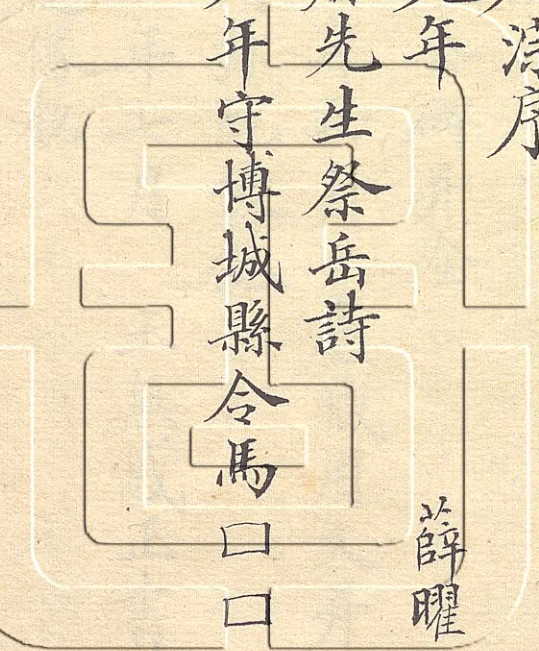 淙序
年
薛曜
先生祭岳詩
年守博城縣令馬口口